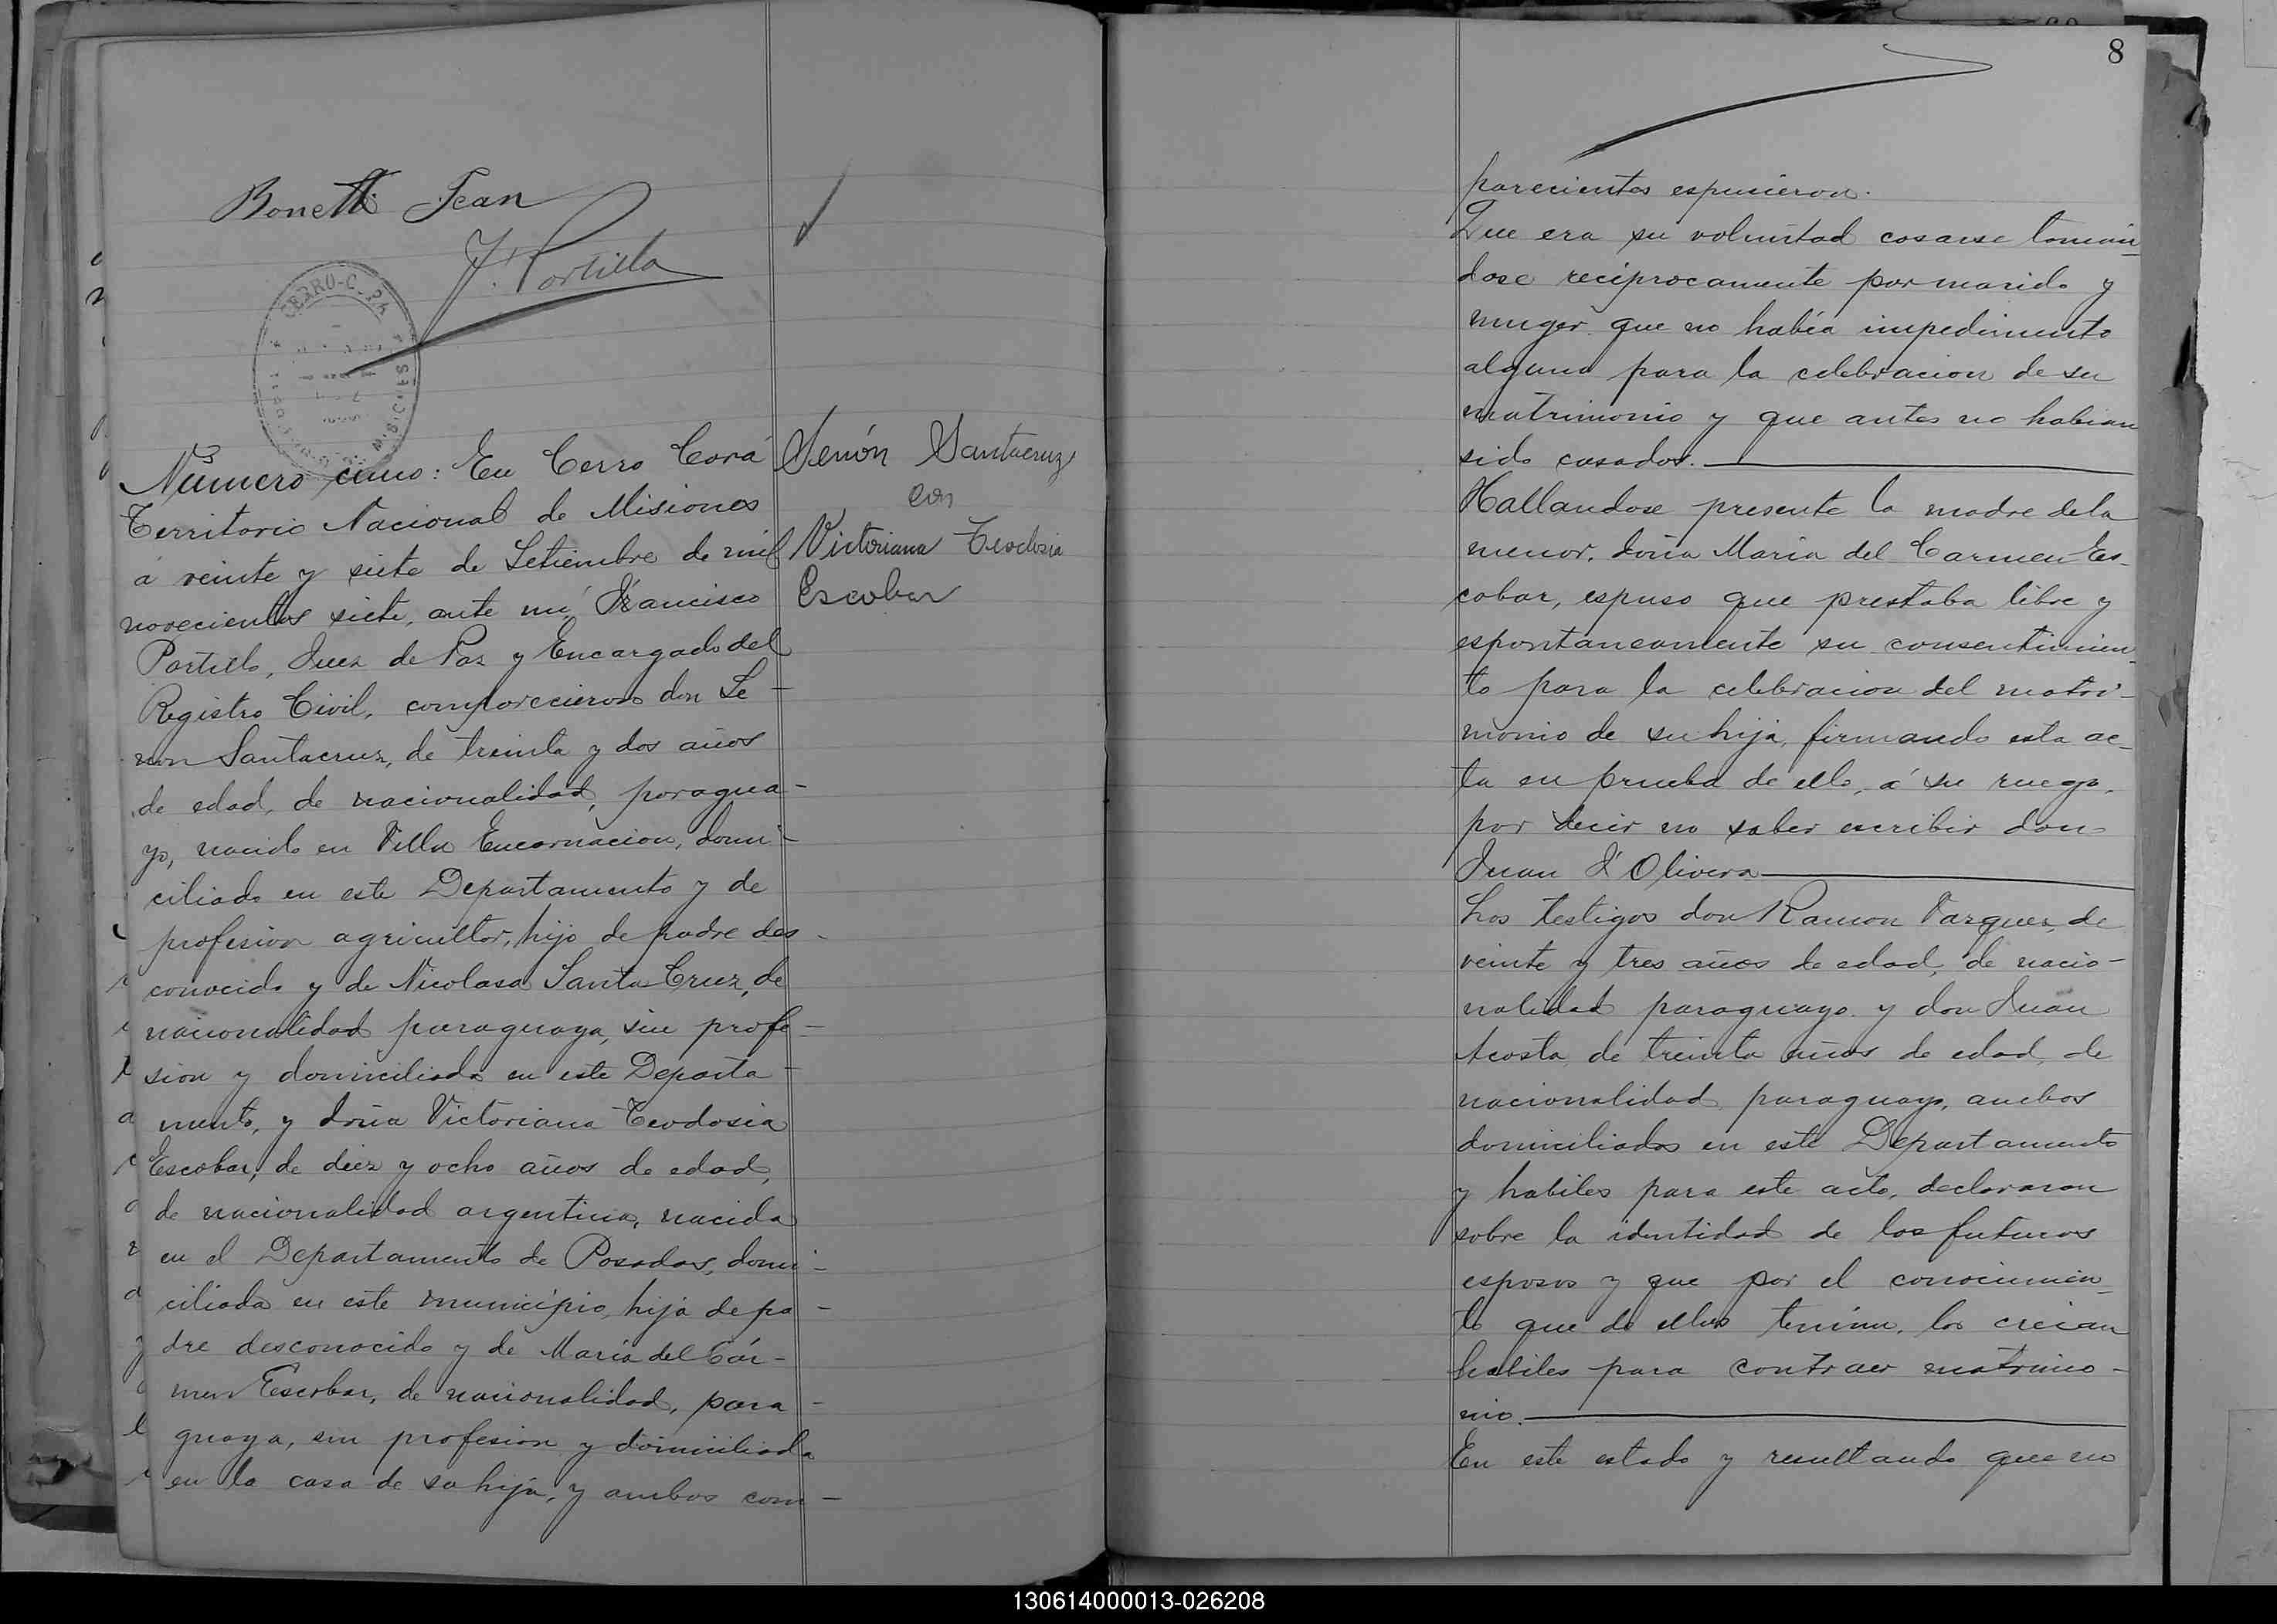 Bonetti Jean
F. Portillo
CERRO-C
Número cinco: En Cerro Corá
Territorio Nacional de Misiones
á veinte y siete de Setiembre de mil
novecientos siete, ante mí, Francisco
Portillo, Juez de Paz y Encargado del
Registro Civil, comparecieron don Se-
non Santacruz, de treinta y dos años
de edad, de nacionalidad, paragua-
yo, nacido en Villa Encarnacion, domi-
ciliado en este Departamento y de
profesion agricultor, hijo de padre des-
conocido y de Nicolasa Santa Cruz, de
nacionalidad paraguaya, sin profe-
sion y domiciliada en este Departa-
mento, y doña Victoriana Teodosia
Escobar, de diez y ocho años de edad,
de nacionalidad argentina, nacida
en el Departamento de Posadas, domi-
ciliada en este municipio, hija de pa-
dre desconocido y de María del Cár-
men Escobar, de nacionalidad, para-
guaya, sin profesion y domiciliada
en la casa de su hija, y ambos com-
Senón Santacruz
con
Victoriana Teodosia
Escobar
8
parecientes espusieron.
Que era su voluntad casarse toman-
dose reciprocamente por marido y
muger que no había impedimento
alguno para la celebracion de su
matrimonio y que antes no habian
sido casados.
Hallandose presente la madre de la
menor, doña María del Carmen Es-
cobar, espuso que prestaba libre y
espontaneamente su consentimien-
to para la celebracion del matri-
monio de su hija, firmando esta ac-
ta en prueba de ello, á su ruego,
por decir no saber escribir don
Juan d'Olivera
Los testigos don Ramon Vazquez, de
veinte y tres años de edad, de nacio-
nalidad paraguayo y don Juan
Acosta de treinta años de edad, de
nacionalidad, paraguayo, ambos
domiciliados en este Departamento
y habiles para este acto, declararon
sobre la identidad de los futuros
esposos y que por el conocimien-
to que de ellos tenian, los creian
habiles para contraer matrimo-
nio.
En este estado y resultando que no
130614000013-026208